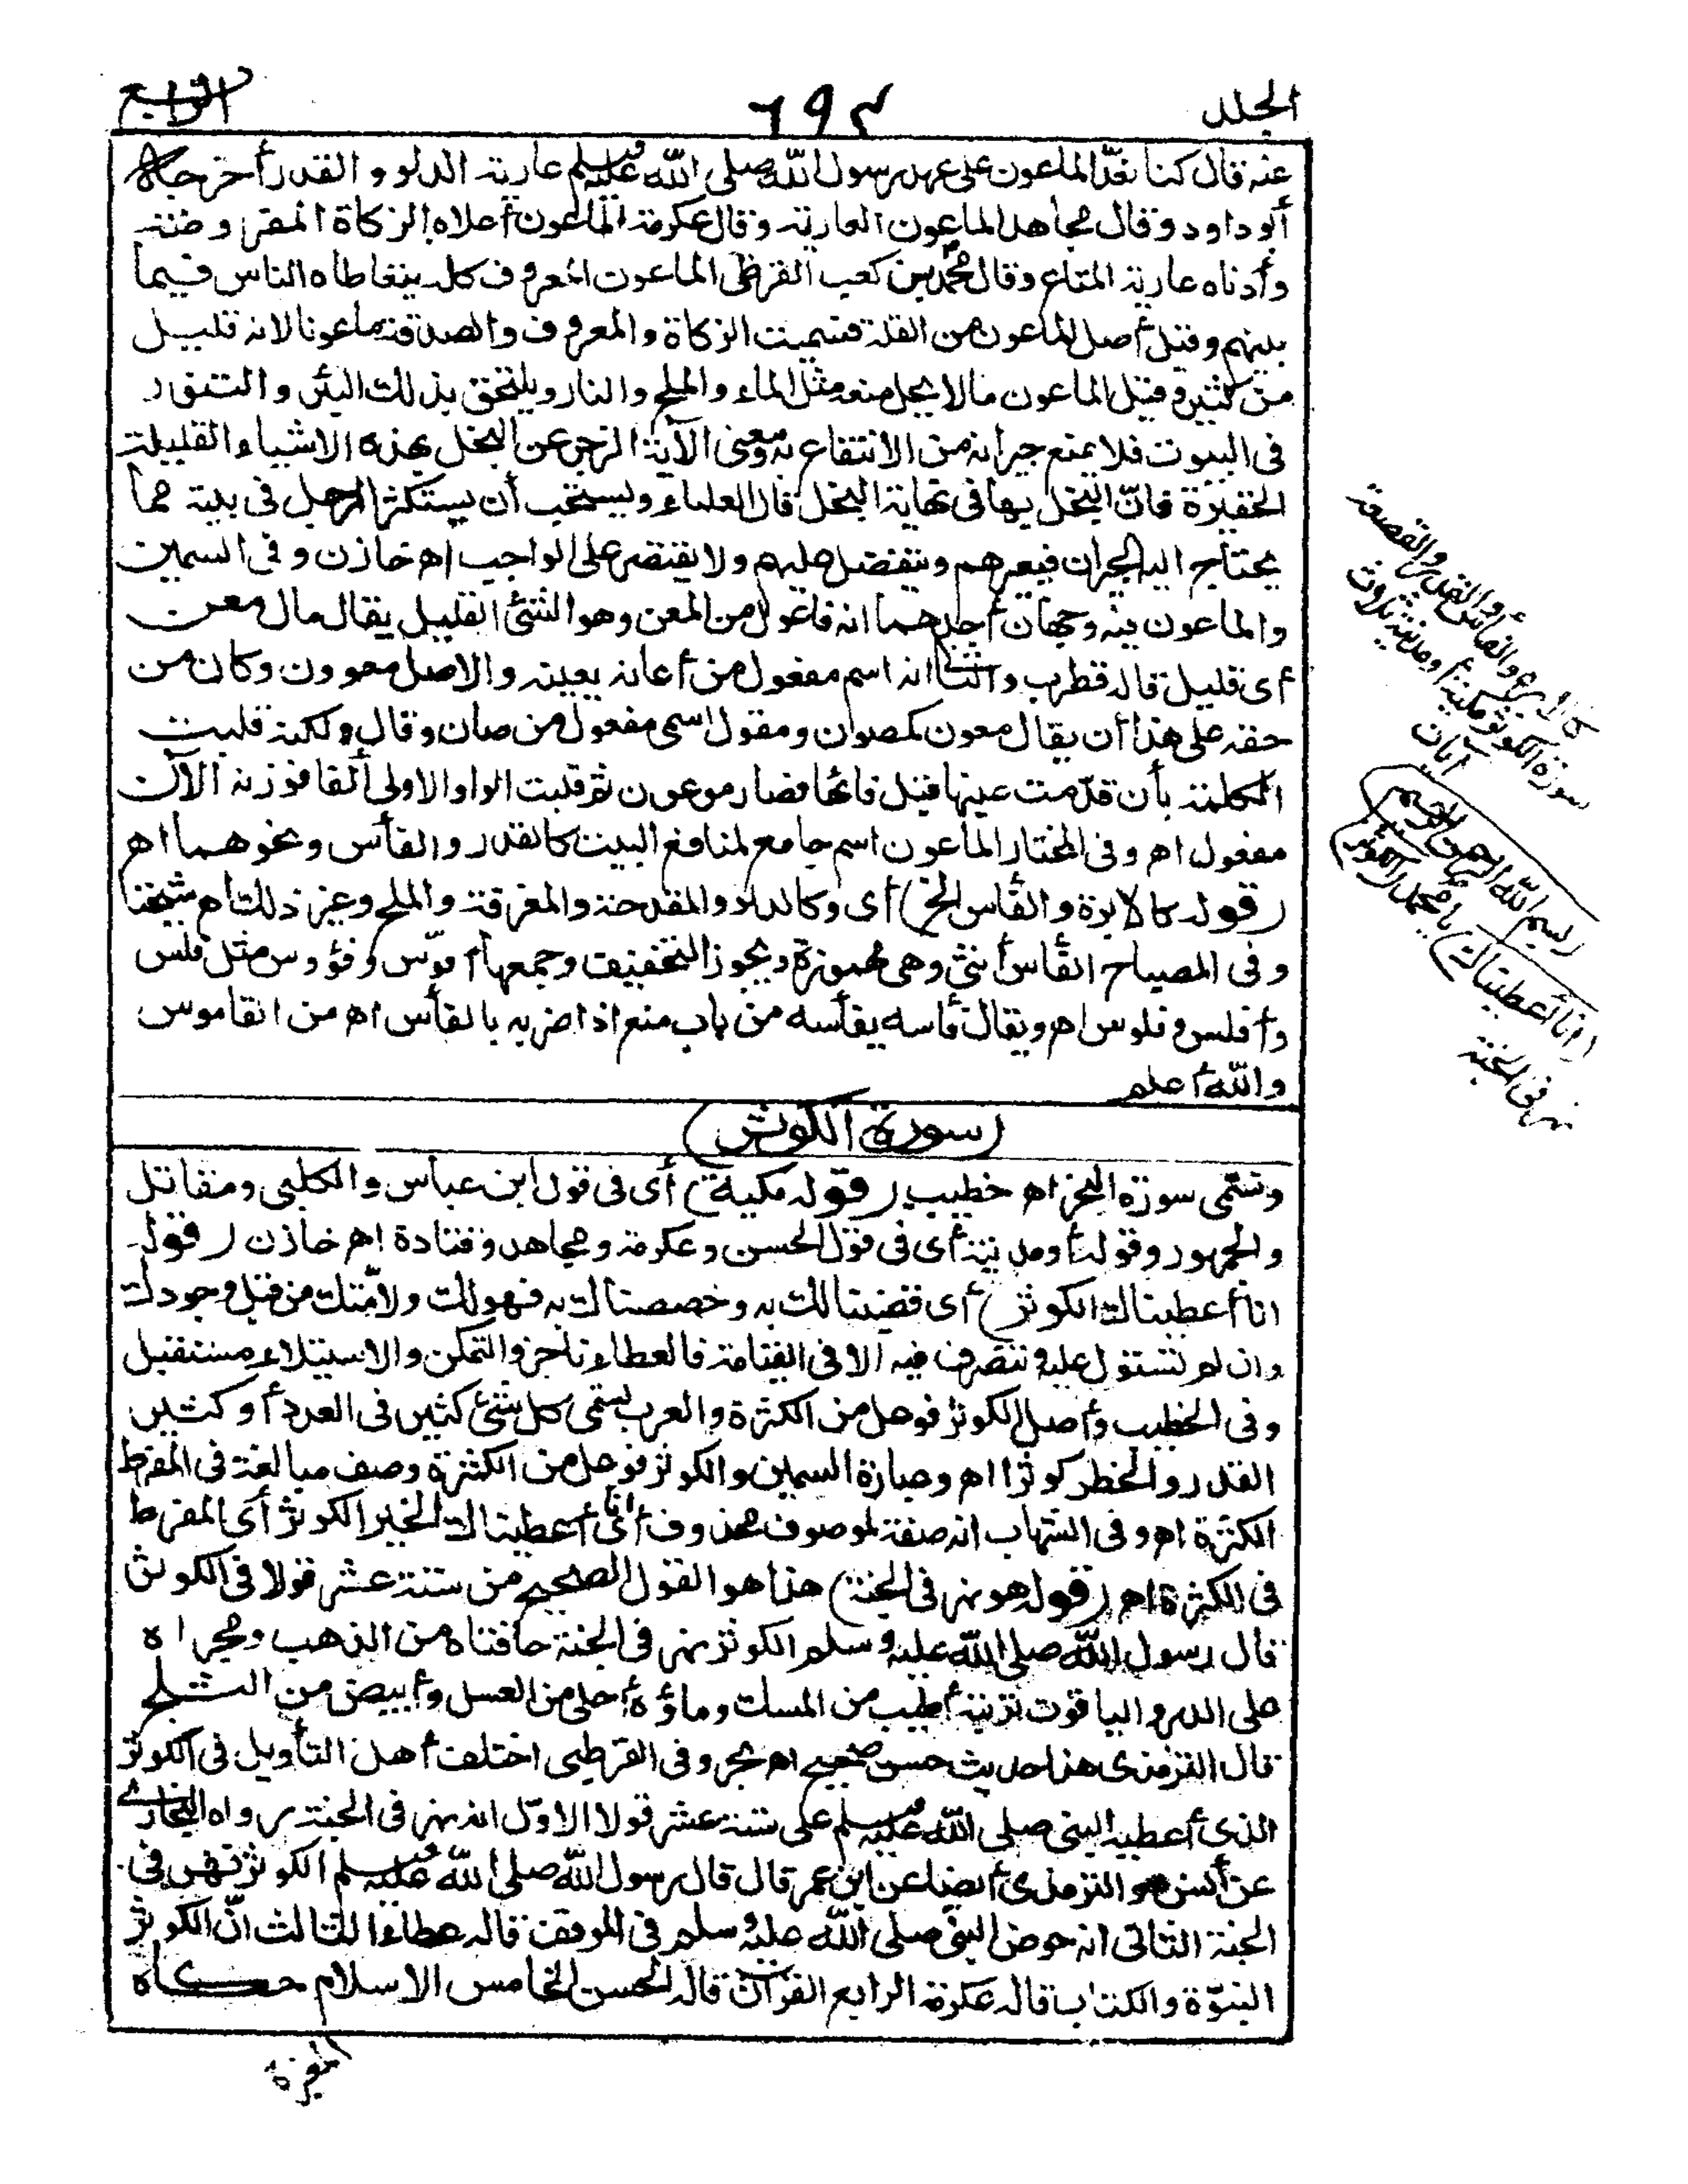 الجلد ٦٩٤ الرابع
عنه قال كنا نعدّ الماعون على عهد رسول الله صلى الله عليه وسلم عارية الدلو والقدر أخرجاه
أبو داود وقال مجاهد الماعون العارية وقال عكرمة الماعون أعلاه الزكاة المفروضة
وأدناه عارية المتاع وقال محمد بن كعب القرظى الماعون المعروف كله يتعاطاه الناس فيما
بينهم وقيل أصل الماعون من القلة فسميت الزكاة والمعروف والصدقة ماعونا لانه قليل
من كثير وقيل الماعون مالا يحل منعه مثل الماء والملح والنار ويلتحق بذلك البئر والتنور
فى البيوت فلا يمنع جيرانه من الانتفاع به ومعنى الآية الزجر عن البخل بهذه الاشياء القليلة
الحقيرة فانّ البخل بها فى نهاية البخل قال العلماء ويستحب أن يستكثر الرجل فى بيته مما
يحتاج اليه الجيران فيعيرهم ويتفضل عليهم ولا يقتصر على الواجب اه خازن وفى السمين
والماعون فيه وجهان أحدهما انه فاعول من المعن وهو الشئ القليل يقال مال معن
أى قليل قاله قطرب والثانى انه اسم مفعول من أعانه يعينه والاصل معوون وكان من
حقه على هذا أن يقال معون كمصون ومقول اسمى مفعول من صان وقال ولكنه قلبت
الكلمة بأن قدّمت عينها قبل فائها فصار موعون ثم قلبت الواو الاولى ألفا فوزنه الآن
مفعول اه وفى المختار الماعون اسم جامع لمنافع البيت كالقدر والفأس ونحوهما اه
(قوله كالابرة والفأس الخ) أى وكالدلو والمقدحة والمغرفة والملح وغير ذلك اه شيخنا
وفى المصباح الفأس أنثى وهى مهموزة ويجوز التخفيف وجمعها أفؤس وفؤوس مثل فلس
وأفلس وفلوس اه ويقال فأسه يفأسه من باب منع اذا ضربه بالفأس اه من القاموس
والله أعلم
(سورة الكوثر)
وتسمى سورة النحر اه خطيب (قوله مكية) أى فى قول ابن عباس والكلبى ومقاتل
والجمهور وقوله أو مدنية أى فى قول الحسن وعكرمة ومجاهد وقتادة اه خازن (قوله
انا أعطيناك الكوثر) أى قضينا لك به وخصصناك به فهو لك ولامّتك من قبل وجودك
وان لم تستول عليه وتتصرف فيه الا فى القيامة فالعطاء ناجز والتمكن والاستيلاء مستقبل
وفى الخطيب وأصل الكوثر فوعل من الكثرة والعرب تسمى كل شئ كثير فى العدد أو كثير
القدر والخطر كوثرا اه وعبارة السمين والكوثر فوعل من الكثرة وصف مبالغة فى المفرط
الكثرة اه وفى الشهاب انه صفة لموصوف محذوف أى انا أعطيناك الخير الكوثر أى المفرط
فى الكثرة اه (قوله هو نهر فى الجنة) هذا هو القول الصحيح من ستة عشر قولا فى الكوثر
قال رسول الله صلى الله عليه وسلم الكوثر نهر فى الجنة حافتاه من الذهب ومجراه
على الدر والياقوت تربته أطيب من المسك وماؤه أحلى من العسل وأبيض من الثلج
قال الترمذى هذا حديث حسن صحيح اه بحر وفى القرطبى اختلف أهل التأويل فى الكوثر
الذى أعطيه النبى صلى الله عليه وسلم على ستة عشر قولا الاوّل انه نهر فى الجنة رواه البخارى
عن أنس والترمذى أيضا عن ابن عمر قال قال رسول الله صلى الله عليه وسلم الكوثر نهر فى
الجنة الثانى انه حوض النبى صلى الله عليه وسلم فى الموقف قاله عطاء الثالث انّ الكوثر
النبوّة والكتاب قاله عكرمة الرابع القرآن قاله الحسن الخامس الاسلام حكاه
المغيرة
كالابرة والفأس والقدر والقصعة
سورة الكوثر مكية أو مدنية ثلاث
آيات
(بسم الله الرحمن الرحيم
(انا أعطيناك) يا محمد (الكوثر)
نهر فى الجنة